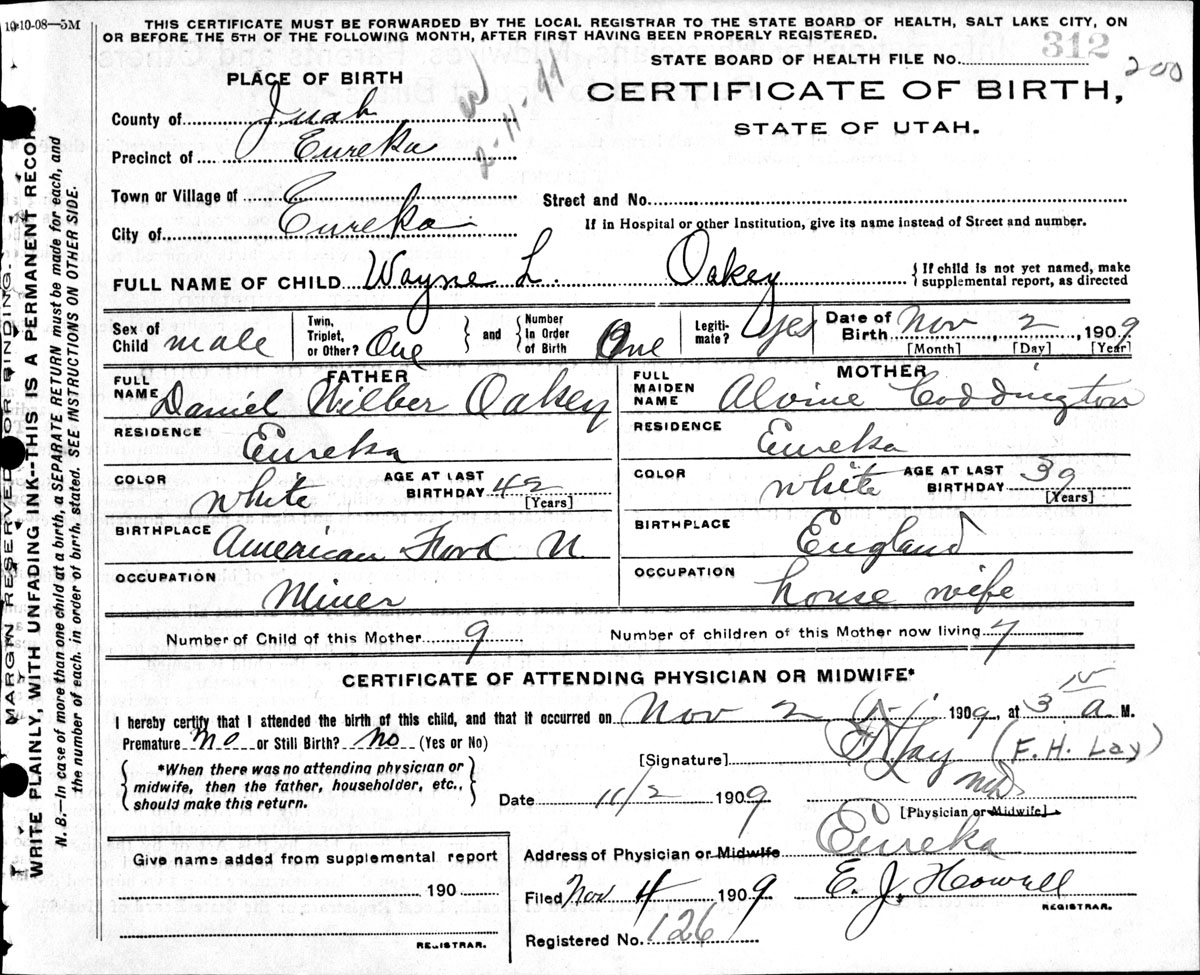 10-10-08—5M
THIS CERTIFICATE MUST BE FORWARDED BY THE LOCAL REGISTRAR TO THE STATE BOARD OF HEALTH, SALT LAKE CITY, ON
OR BEFORE THE 5TH OF THE FOLLOWING MONTH, AFTER FIRST HAVING BEEN PROPERLY REGISTERED.
STATE BOARD OF HEALTH FILE No. 312
200
PLACE OF BIRTH
CERTIFICATE OF BIRTH,
STATE OF UTAH.
County of Juab
Precinct of Eureka
Town or Village of
City of Eureka
Street and No.
If in Hospital or other Institution, give its name instead of Street and number.
FULL NAME OF CHILD Wayne L. Oakey
{ If child is not yet named, make
supplemental report, as directed
Sex of Child male
Twin, Triplet, or Other? One } and { Number In Order of Birth One
Legiti-mate? yes
Date of Birth Nov 2, 1909
[Month] [Day] [Year]
FATHER
FULL NAME Daniel Wilber Oakey
RESIDENCE Eureka
COLOR White AGE AT LAST BIRTHDAY 42 [Years]
BIRTHPLACE American Ford U
OCCUPATION Miner
MOTHER
FULL MAIDEN NAME Alvine Coddington
RESIDENCE Eureka
COLOR White AGE AT LAST BIRTHDAY 39 [Years]
BIRTHPLACE England
OCCUPATION house wife
Number of Child of this Mother 9 Number of children of this Mother now living 7
CERTIFICATE OF ATTENDING PHYSICIAN OR MIDWIFE*
I hereby certify that I attended the birth of this child, and that it occurred on Nov 2 1909, at 3 10 a M.
Premature No or Still Birth? No (Yes or No)
{ *When there was no attending physician or
midwife, then the father, householder, etc.,
should make this return. }
[Signature] F H Lay (F. H. Lay)
MD
Date 11/2 1909
[Physician or Midwife]
Address of Physician or Midwife Eureka
Filed Nov 4 1909 E. J. Howell
REGISTRAR.
Registered No. 126
Give name added from supplemental report
190
REGISTRAR.
MARGIN RESERVED FOR BINDING.
WRITE PLAINLY, WITH UNFADING INK--THIS IS A PERMANENT RECORD.
N. B.—In case of more than one child at a birth, a SEPARATE RETURN must be made for each, and
the number of each, in order of birth, stated. SEE INSTRUCTIONS ON OTHER SIDE.